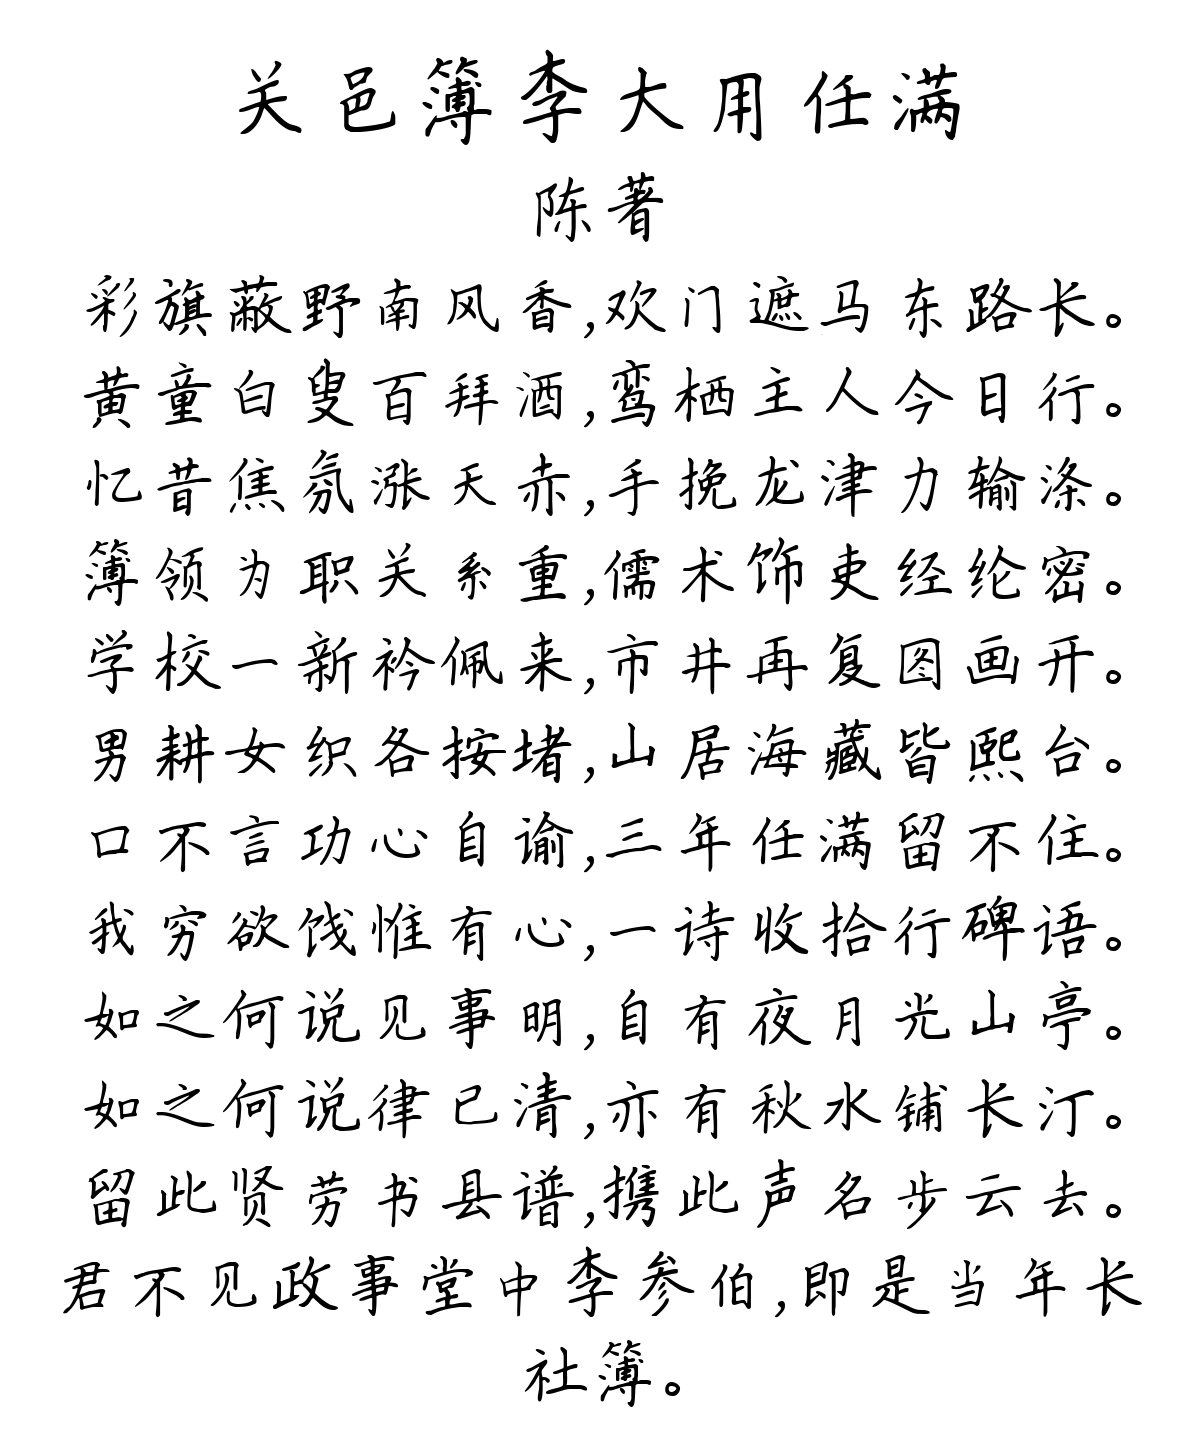 关邑簿李大用任满
陈著
彩旗蔽野南风香,欢门遮马东路长。
黄童白叟百拜酒,鸾栖主人今日行。
忆昔焦氛涨天赤,手挽龙津力输涤。
簿领为职关系重,儒术饰吏经纶密。
学校一新衿佩来,市井再复图画开。
男耕女织各按堵,山居海藏皆熙台。
口不言功心自谕,三年任满留不住。
我穷欲饯惟有心,一诗收拾行碑语。
如之何说见事明,自有夜月光山亭。
如之何说律已清,亦有秋水铺长汀。
留此贤劳书县谱,携此声名步云去。
君不见政事堂中李参伯,即是当年长
社簿。